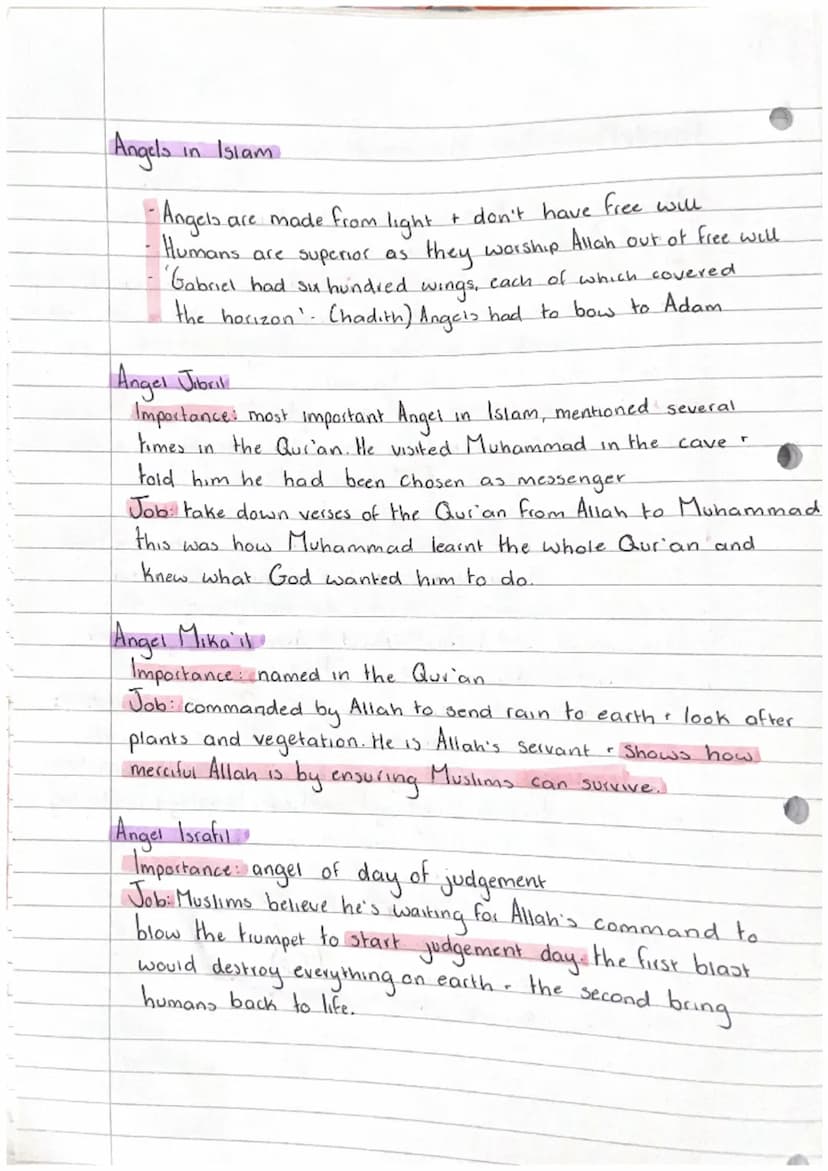 Angels in Islam
- Angels are made from light + don't have free will
- Humans are superior as they worship Allah out of free will
- 'Gabriel had six hundred wings, each of which covered
the horizon'- (hadith) Angels had to bow to Adam
Angel Jibril
Importance: most important Angel in Islam, mentioned several
times in the Qur'an. He visited Muhammad in the cave +
told him he had been chosen as messenger
Job: take down verses of the Qur'an from Allah to Muhammad
this was how Muhammad learnt the whole Qur'an and
knew what God wanted him to do.
Angel Mika'il
Importance: named in the Qur'an
Job: commanded by Allah to send rain to earth + look after
plants and vegetation. He is Allah's servant + shows how
merciful Allah is by ensuring Muslims can survive.
Angel Israfil
Importance: angel of day of judgement
Job: Muslims believe he's waiting for Allah's command to
blow the trumpet to start judgement day. the first blast
would destroy everything on earth + the second bring
humans back to life.